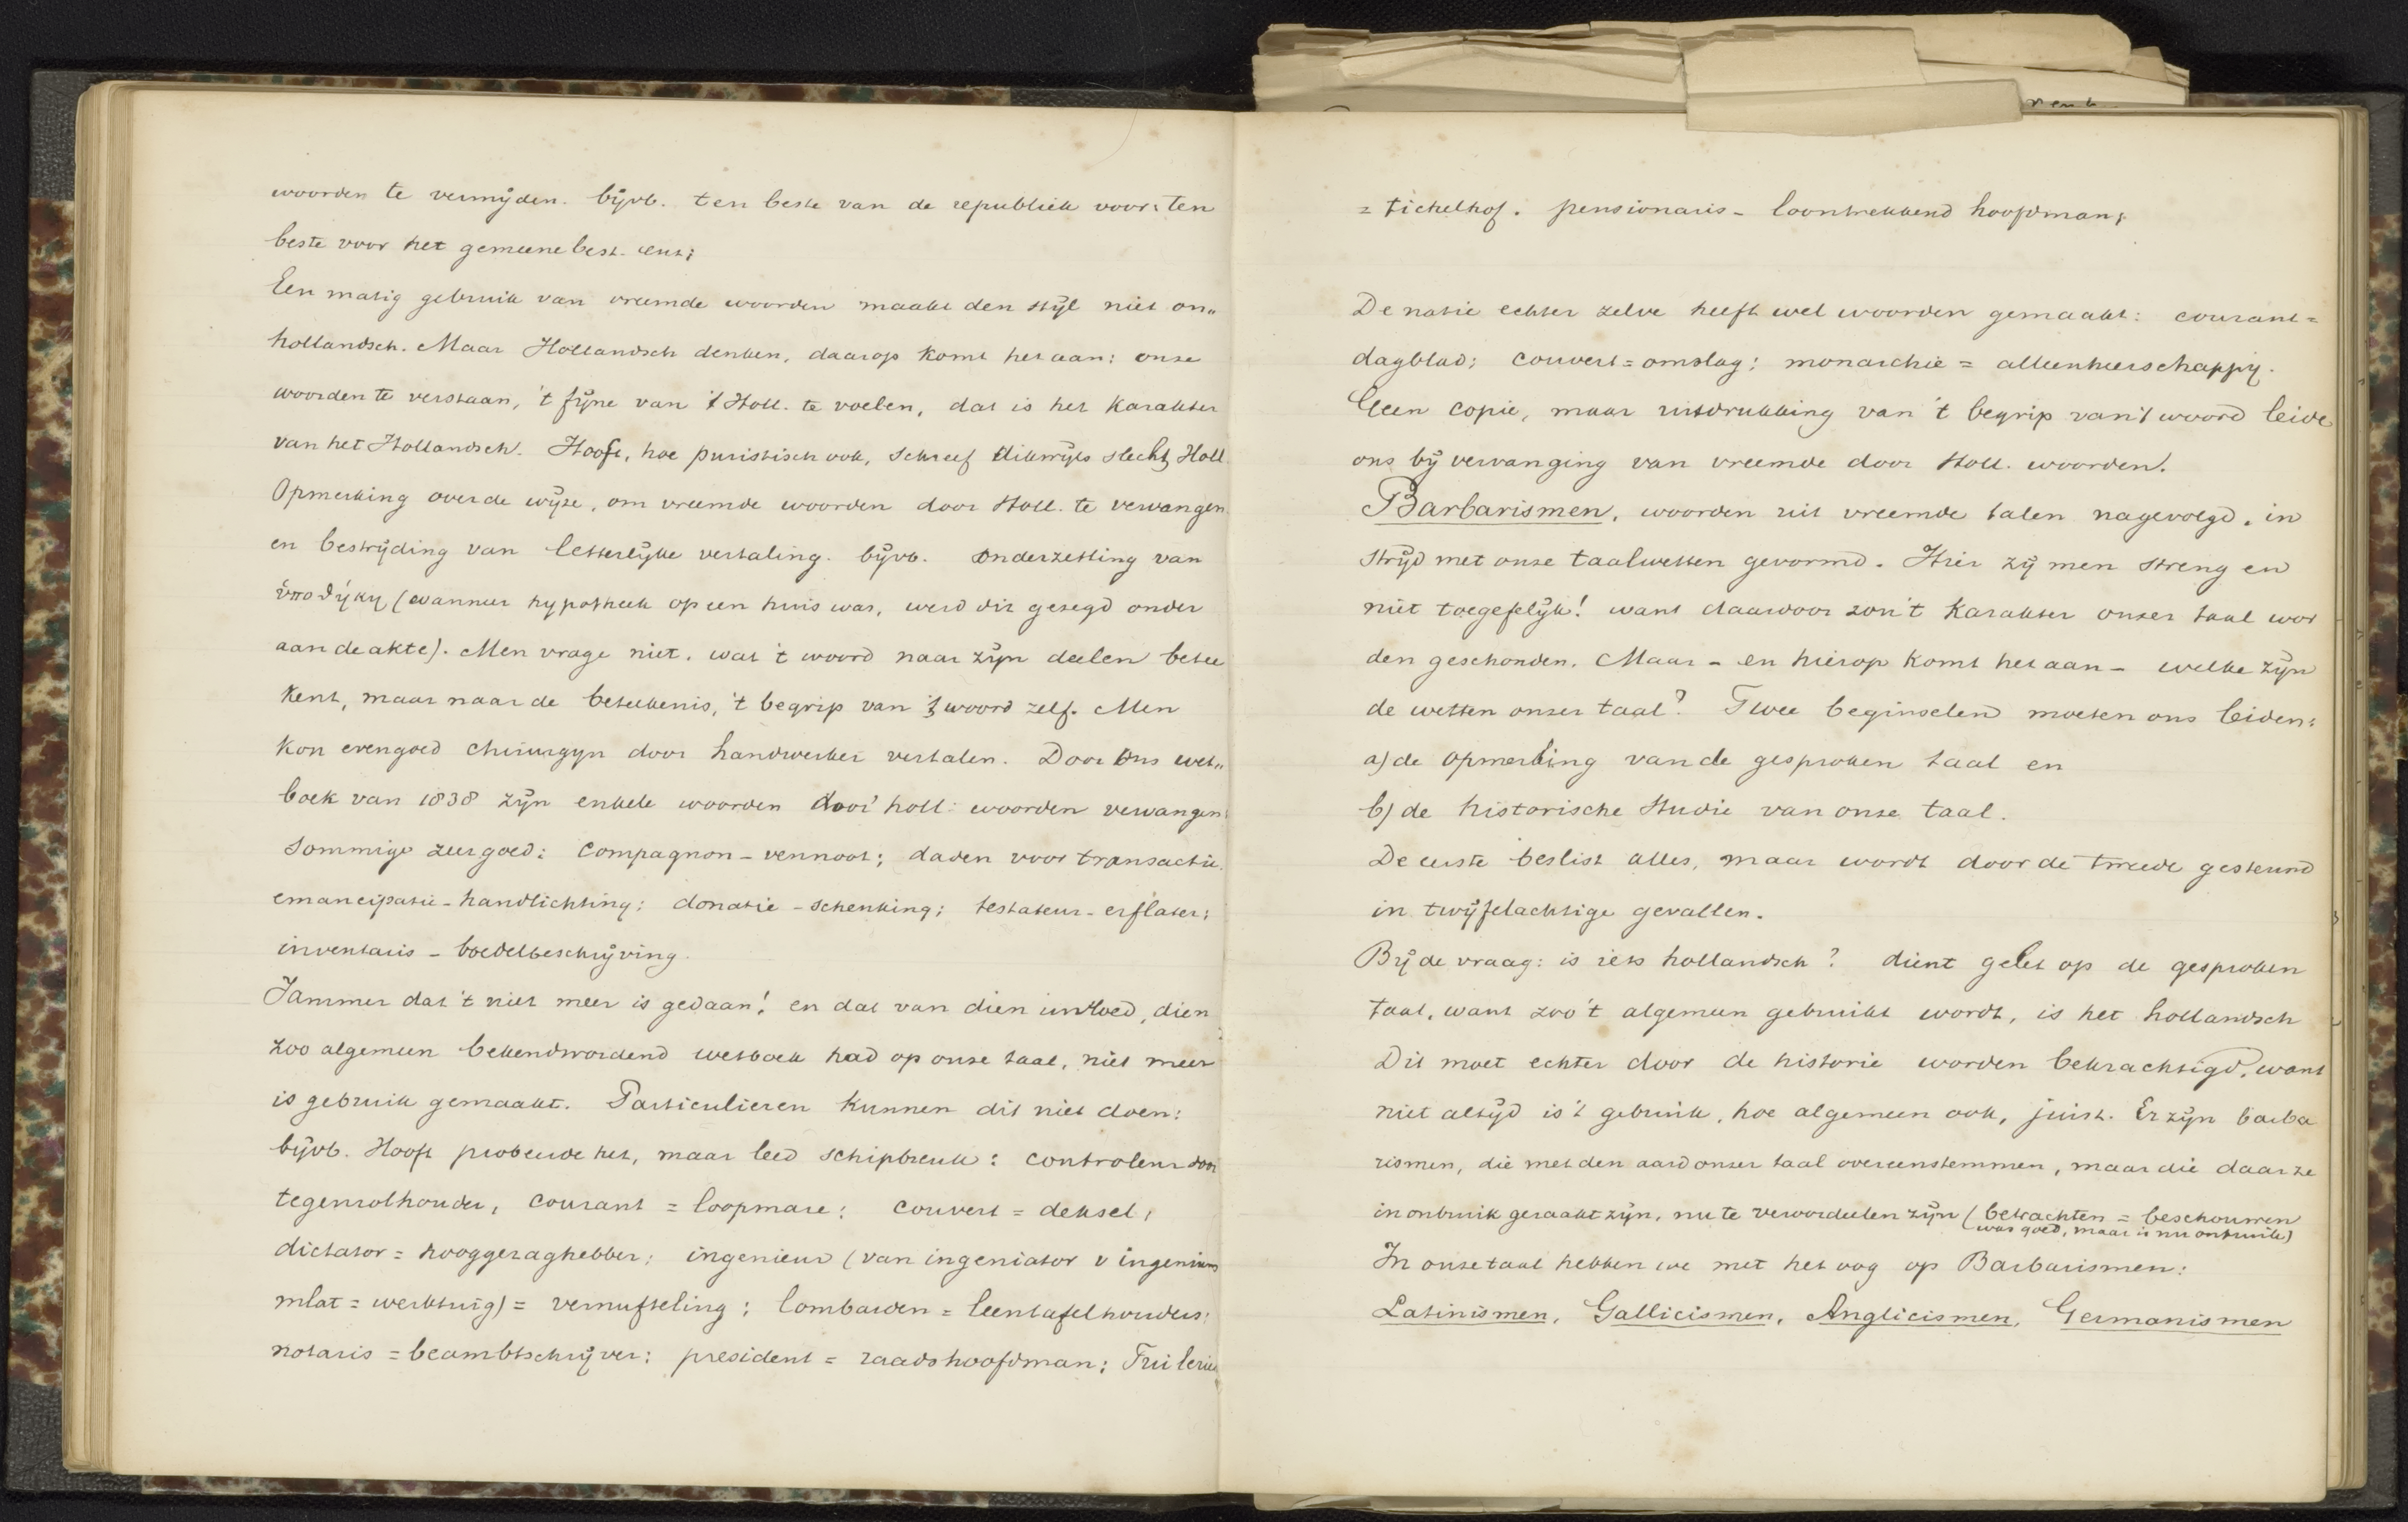 woorden te vermijden. bijvb. ten beste van de republiek voor: ten
beste voor het gemeenebest. enz;
Een matig gebruik van vreemde woorden maakt den stijl niet on„
hollandsch. Maar Hollandsch denken, daarop komt het aan: onze
woorden te verstaan, 't fijne van 't Holl. te voelen, dat is het karakter
van het Hollandsch. Hooft, hoe puristisch ook, schreef dikwijls slecht Holl.
Opmerking over de wijze, om vreemde woorden door Holl. te vervangen
en bestrijding van letterlijke vertaling. bijvb. onderzetting van
ὑποθήκη (wanneer hypotheek op een huis was, werd dit gezegd onder
aan de akte). Men vrage niet, wat 't woord naar zijn deelen betee
kent, maar naar de beteekenis, 't begrip van 't woord zelf. Men
kon evengoed chirurgyn door handwerker vertalen. Door ons wet„
boek van 1838 zijn enkele woorden door holl: woorden vervangen:
sommige zeer goed: compagnon - vennoot; daden voor transactie.
emancipatie - handlichting; donatie - schenking; testateur - erflater;
inventaris - boedelbeschrijving.
Jammer dat 't niet meer is gedaan! en dat van dien invloed, dien
zoo algemeen bekendwordend wetboek had op onze taal, niet meer
is gebruik gemaakt. Particulieren kunnen dit niet doen:
bijvb. Hooft probeerde het, maar leed schipbreuk: controleur door
tegenrolhouder, courant = loopmare; couvert = deksel,
dictator = hooggezaghebber; ingenieur (van ingeniator v ingenium
mlat = werktuig) = vernufteling; lombarden = leentafelhouders;
notaris = beambtschrijver; president = raadshoofdman; Tuilerie
= tichelhof. pensionaris - loontrekkend hoofdman;
De natie echter zelve heeft wel woorden gemaakt: courant =
dagblad; couvert = omslag; monarchie = alleenheerschappij.
Geen copie, maar uitdrukking van 't begrip van 't woord leide
ons bij vervanging van vreemde door Holl. woorden.
Barbarismen, woorden uit vreemde talen nagevolgd, in
strijd met onze taalwetten gevormd. Hier zij men streng en
niet toegefelijk! want daardoor zou 't karakter onzer taal wor
den geschonden. Maar - en hierop komt het aan - welke zijn
de wetten onzer taal? Twee beginselen moeten ons leiden:
a) de opmerking van de gesproken taal en
b) de historische studie van onze taal.
De eerste beslist alles, maar wordt door de tweede gesteund
in twijfelachtige gevallen.
Bij de vraag: is iets hollandsch? dient gelet op de gesproken
taal, want zoo 't algemeen gebruikt wordt, is het hollandsch
Dit moet echter door de historie worden bekrachtigd, want
niet altijd is 't gebruik, hoe algemeen ook, juist. Er zijn barba
rismen, die met den aard onzer taal overeenstemmen, maar die daar ze
in onbruik geraakt zijn, nu te veroordeelen zijn (betrachten = beschouwen
was goed, maar is nu onbruik)
In onze taal hebben we met het oog op Barbarismen:
Latinismen, Gallicismen, Anglicismen, Germanismen